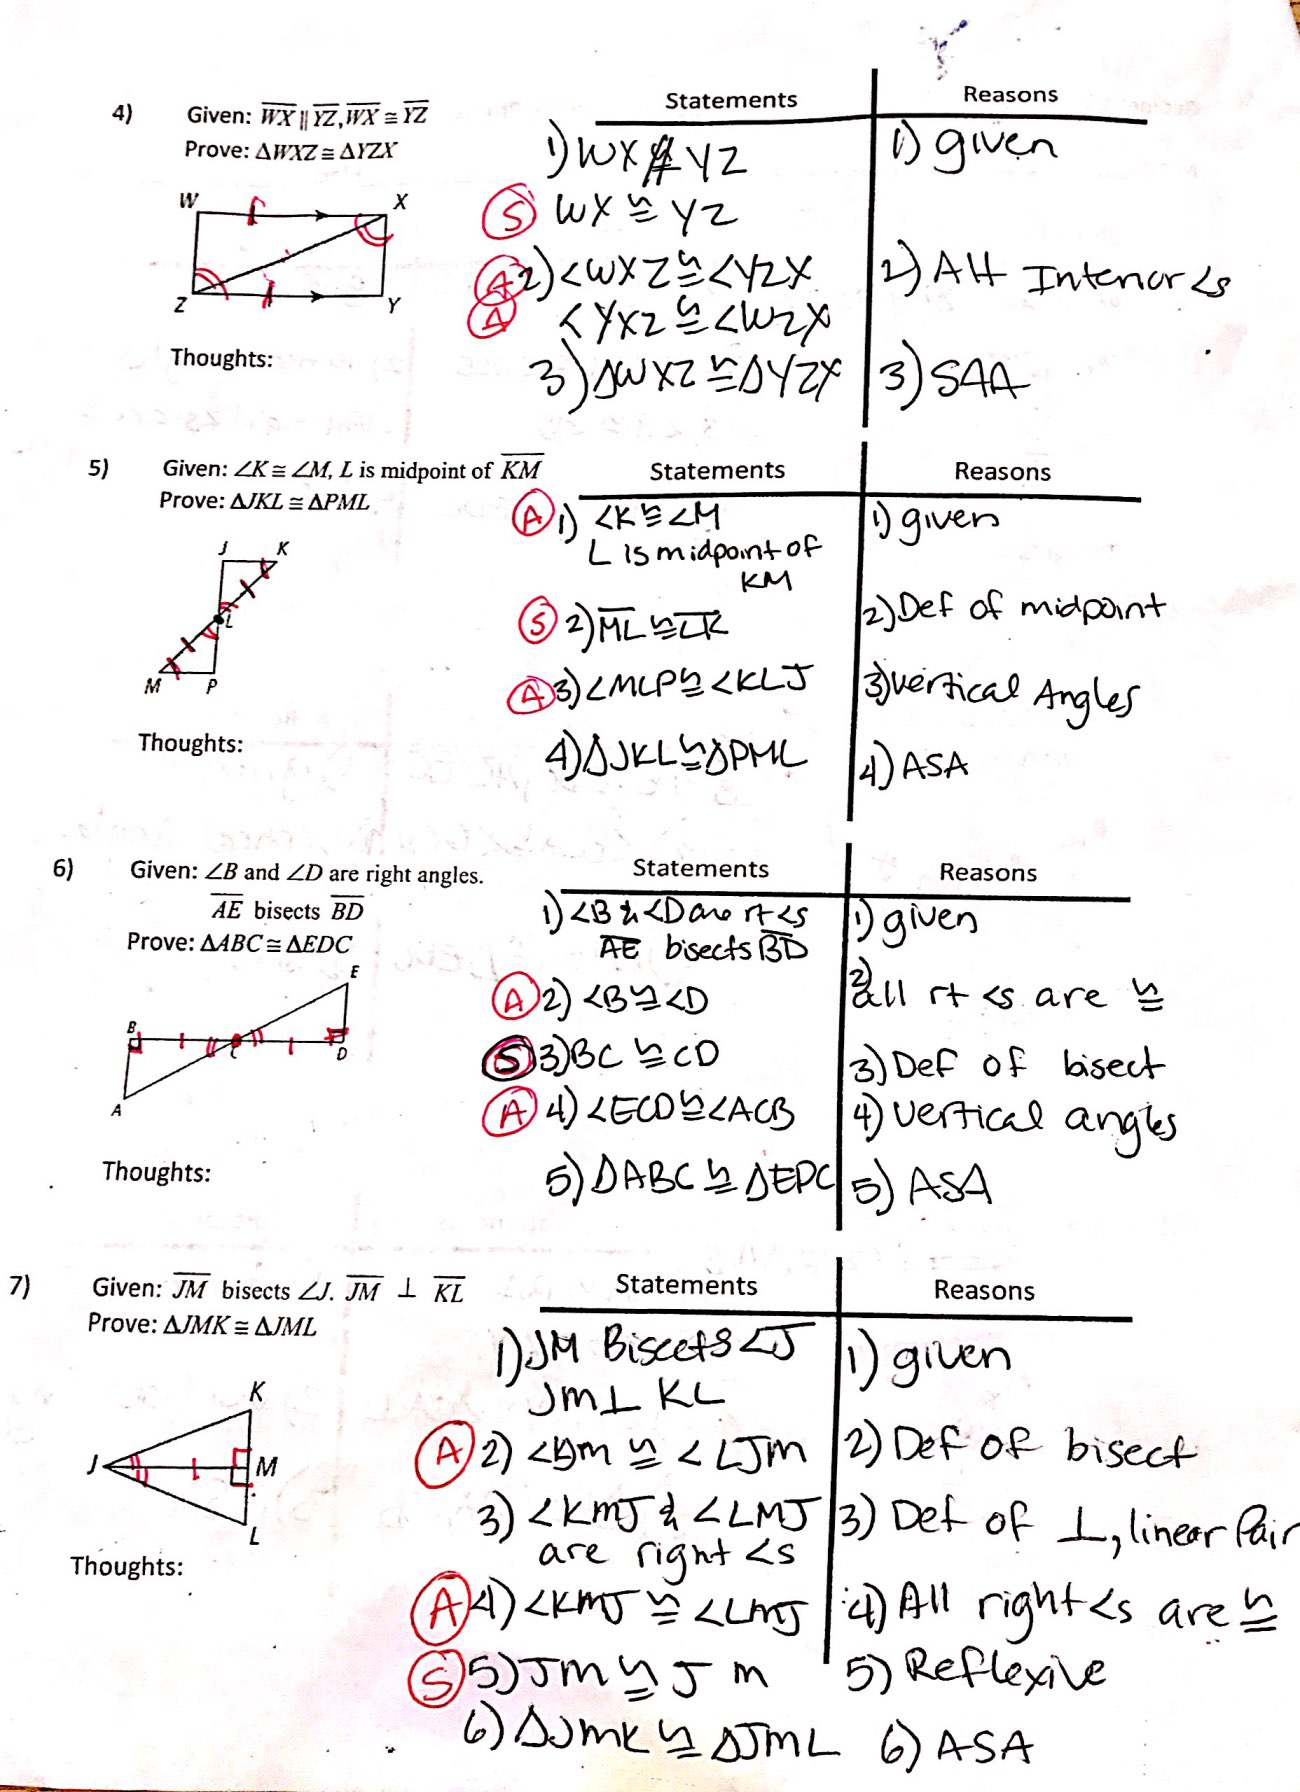 4) Given: WX ∥ YZ, WX ≅ YZ
Prove: ΔWXZ ≅ ΔYZX
W X
Z Y
Thoughts:
Statements Reasons
1) WX ∥ YZ 1) given
S WX ≅ YZ
A 2) <WXZ ≅ <YZX 2) Alt Interior <s
A <YXZ ≅ <WZX
3) ΔWXZ ≅ ΔYZX 3) SAA
5) Given: ∠K ≅ ∠M, L is midpoint of KM
Prove: ΔJKL ≅ ΔPML
J K
L
M P
Thoughts:
Statements Reasons
A 1) <K ≅ <M 1) given
L is midpoint of
KM
S 2) ML ≅ LK 2) Def of midpoint
A 3) <MLP ≅ <KLJ 3) vertical Angles
4) ΔJKL ≅ ΔPML 4) ASA
6) Given: ∠B and ∠D are right angles.
AE bisects BD
Prove: ΔABC ≅ ΔEDC
E
B C D
A
Thoughts:
Statements Reasons
1) <B & <D are rt <s 1) given
AE bisects BD
A 2) <B ≅ <D 2) all rt <s are ≅
S 3) BC ≅ CD 3) Def of bisect
A 4) <ECD ≅ <ACB 4) vertical angles
5) ΔABC ≅ ΔEDC 5) ASA
7) Given: JM bisects ∠J. JM ⊥ KL
Prove: ΔJMK ≅ ΔJML
K
J M
L
Thoughts:
Statements Reasons
1) JM Biscets <J 1) given
JM ⊥ KL
A 2) ≅ <LJM 2) Def of bisect
3) <KMJ & <LMJ 3) Def of ⊥, linear Pair
are right <s
A 4) <KMJ ≅ <LMJ 4) All right <s are ≅
S 5) JM ≅ JM 5) Reflexive
6) ΔJMK ≅ ΔJML 6) ASA